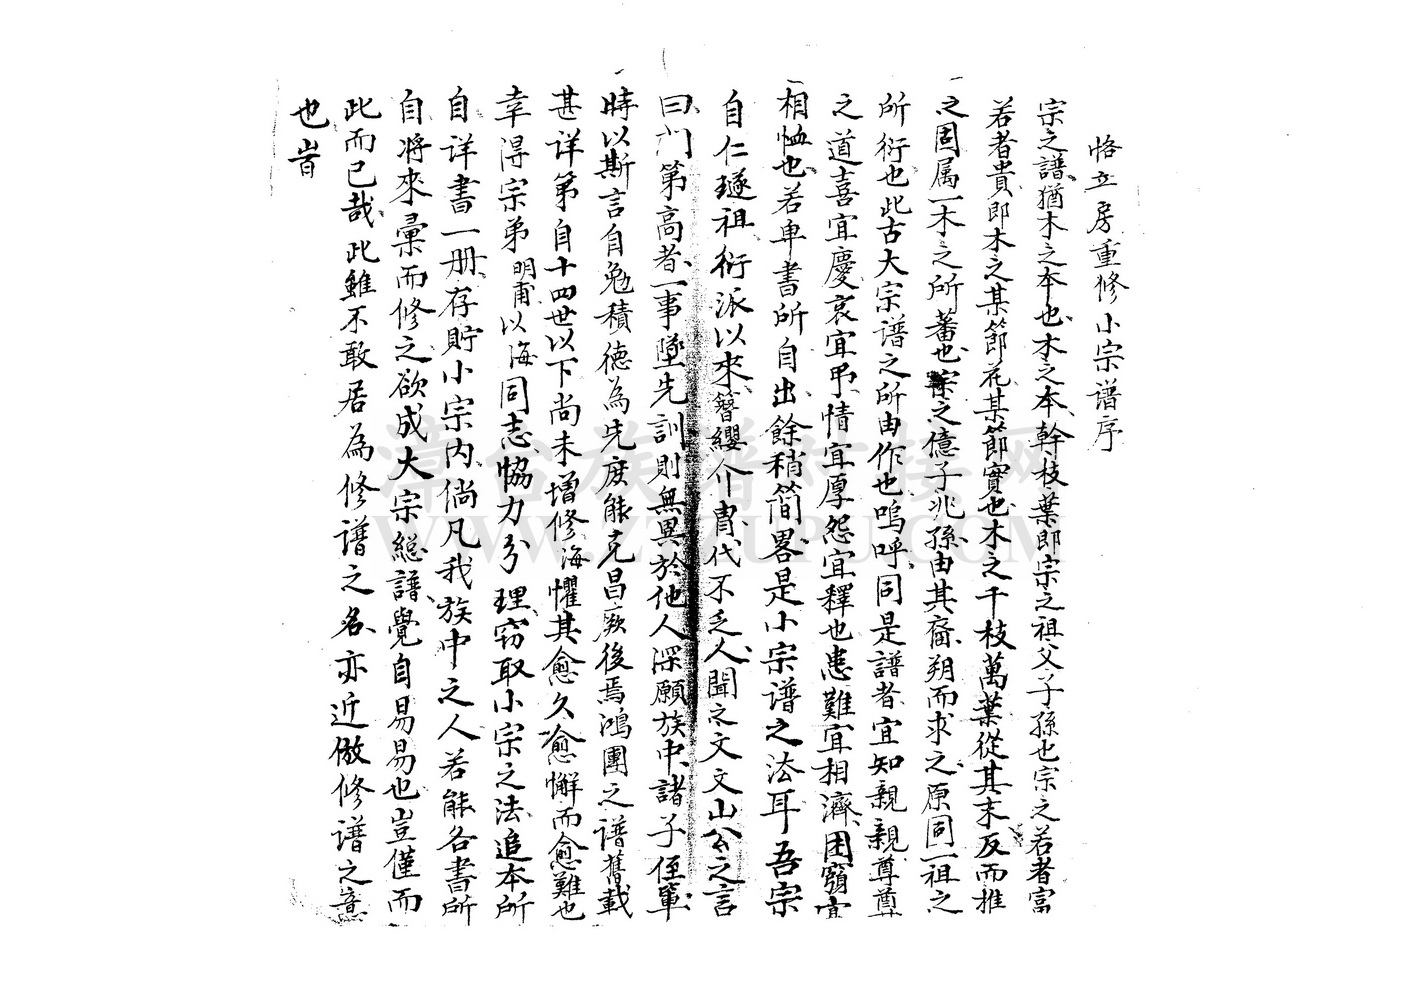 恪立房重修小宗谱序
宗之譜猶木之本也木之本幹枝葉即宗之祖父子孫也宗之若者富
若者貴即木之某節花某節實也木之千枝萬葉從其末反而推
之固属一木之所蕃也宗之億子兆孫由其裔朔而求之原固一祖之
所衍也此古大宗谱之所由作也嗚呼同是譜者宜知親親尊尊
之道喜宜慶哀宜弔情宜厚怨宜釋也患難宜相濟困窮宜
相恤也若專書所自出餘稍简畧是小宗譜之法耳吾宗
自仁璲祖衍派以來簪纓介胄代不乏人聞之文文山公之言
曰門第高者一事墜先訓則無異於他人深願族中諸子侄輩
時以斯言自勉積德為先庶能克昌厥後焉鴻團之谱舊載
甚详第自十四世以下尚未增修海懼其愈久愈懈而愈難也
幸得宗弟明甫以海同志協力分理窃取小宗之法追本所
自详書一册存貯小宗内倘凡我族中之人若能各書所
自将來彙而修之欲成大宗総譜覺自易易也豈僅而
此而已哉此雖不敢居為修譜之名亦近倣修谱之意
也旹
漳台族谱对接网
WWW.ZTZUPU.COM